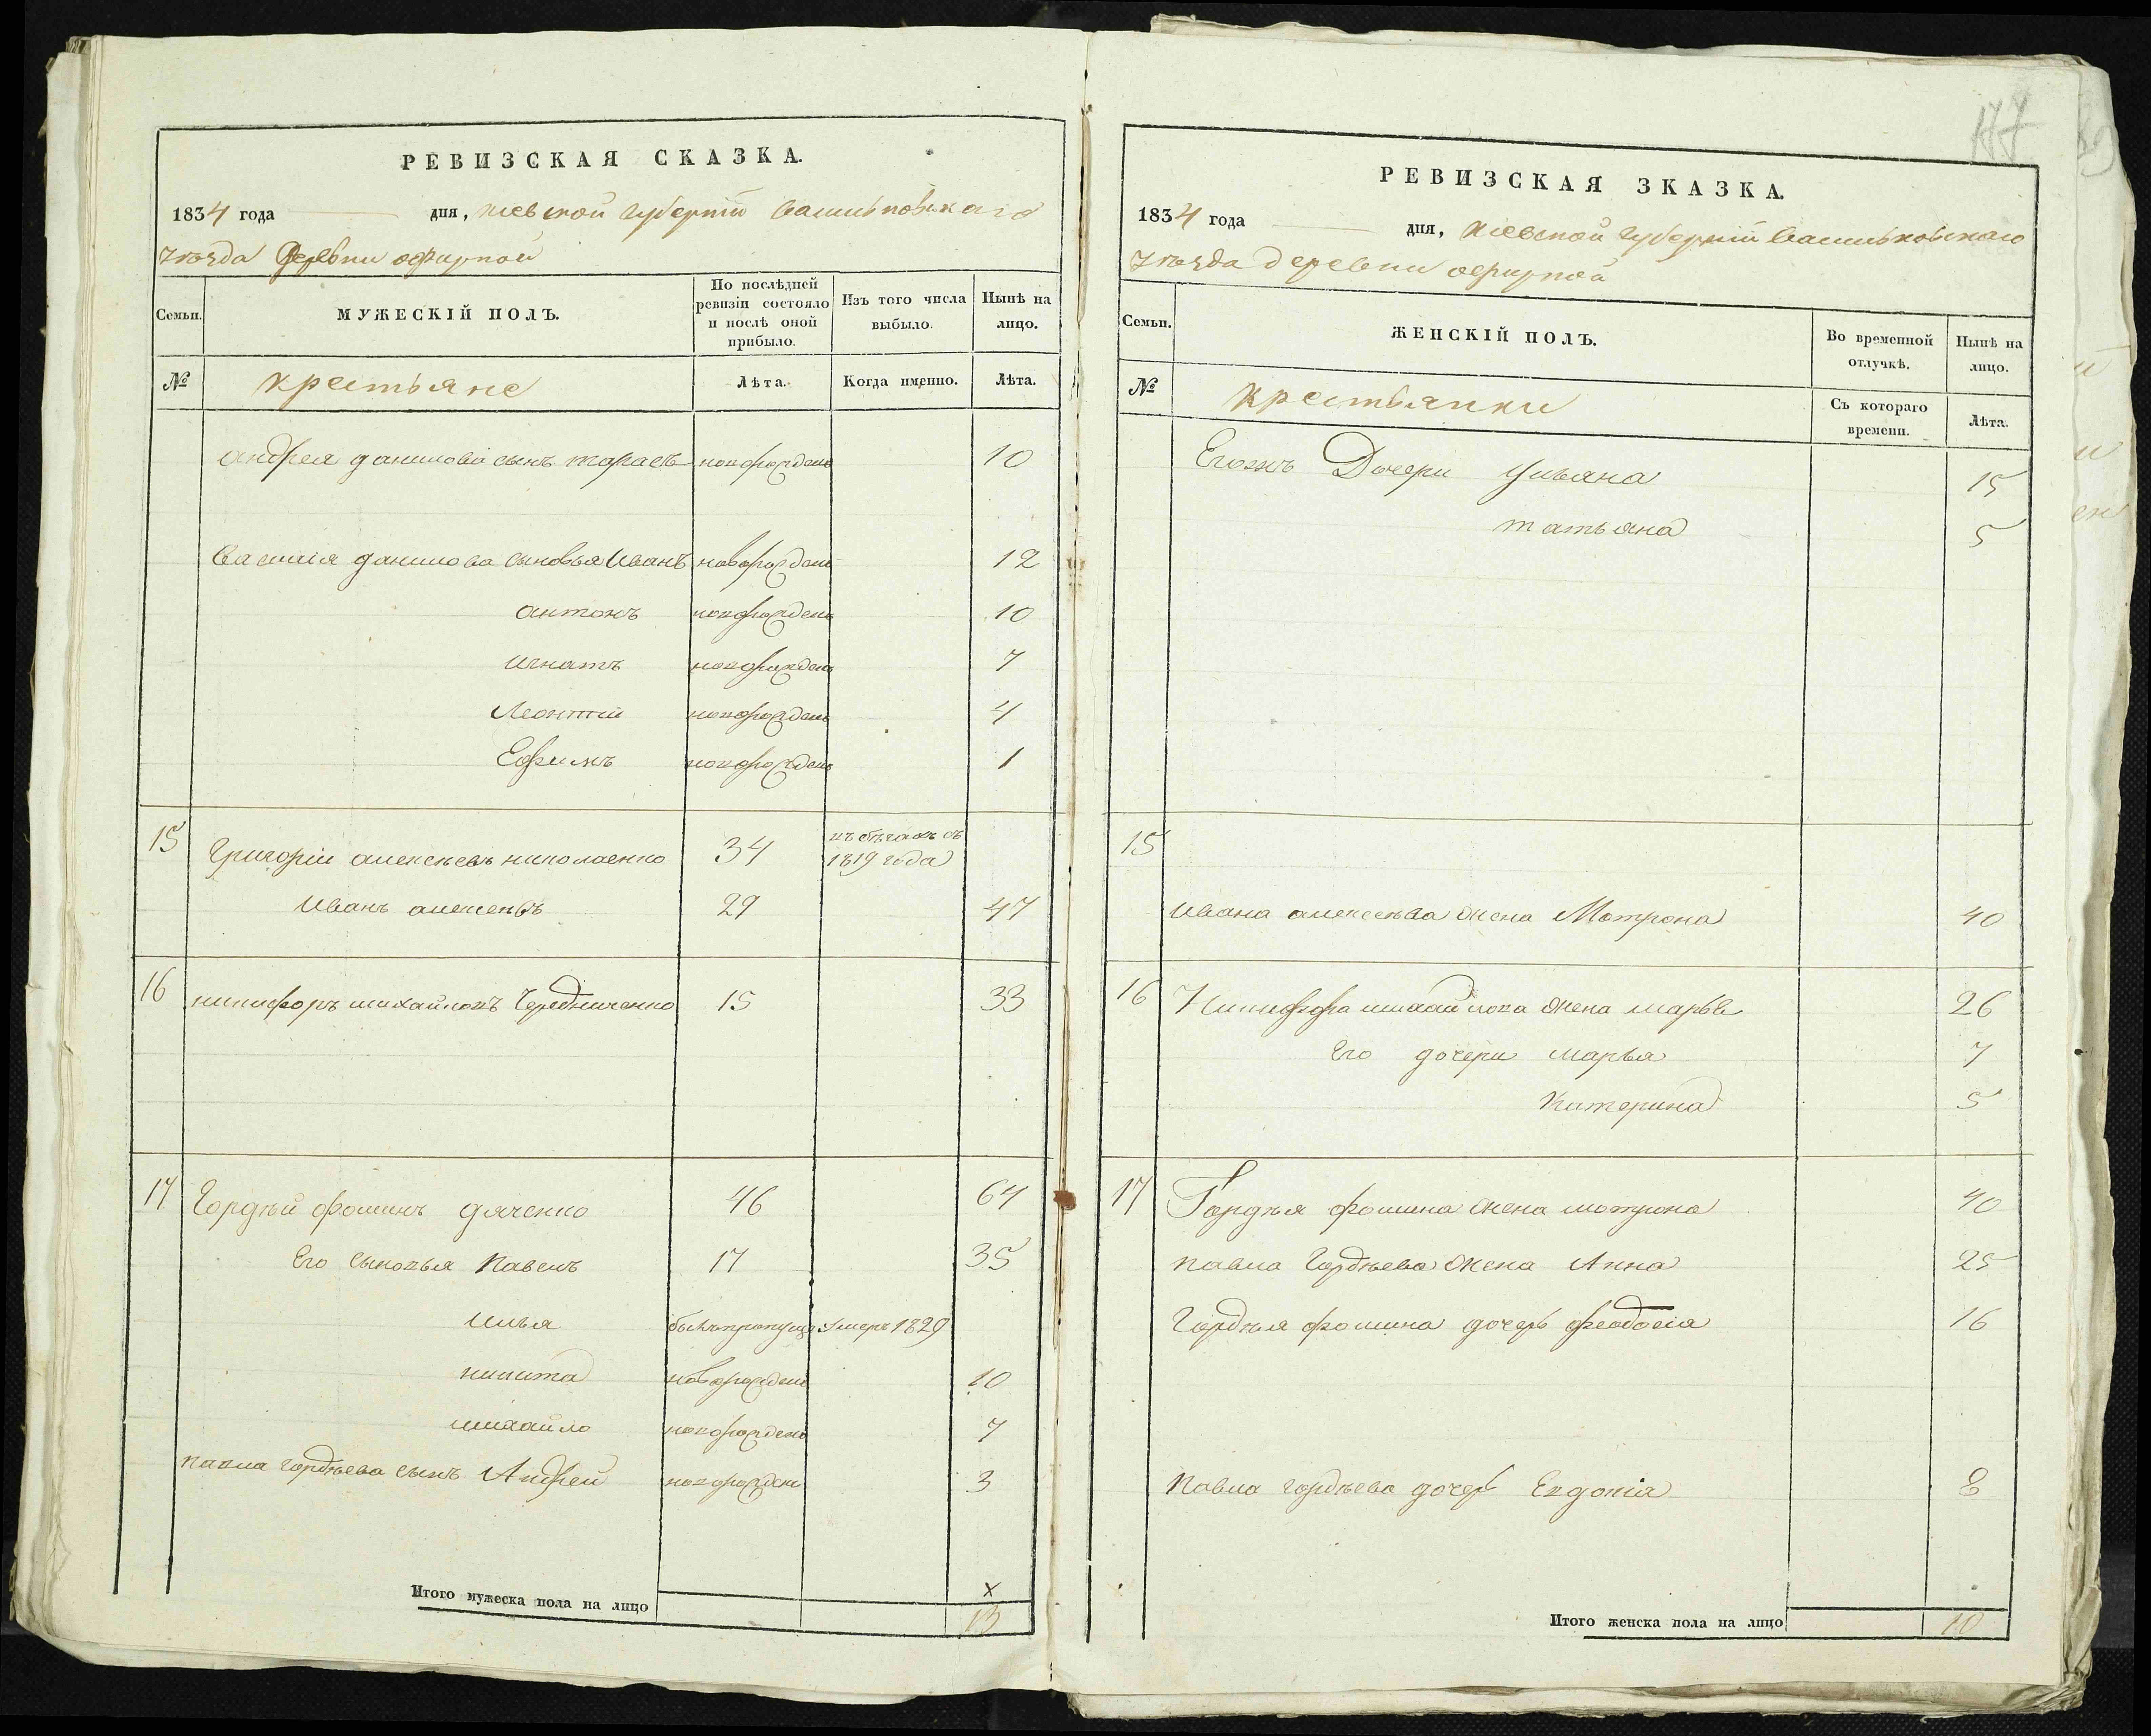 РЕВИЗСКАЯ СКАЗКА.
1834 года дня, киевской губерніи васильковскаго
уѣзда деревни офирной
Семьи.
МУЖЕСКІЙ ПОЛЪ.
По послѣдней ревизіи состояло и послѣ оной прибыло.
Изъ того числа выбыло.
Нынѣ на лицо.
№ крестьяне Лѣта. Когда именно. Лѣта.
андрея данилова сынъ тарасъ новорожденъ 10
василія данилова сыновья иванъ новорожденъ 12
антонъ новорожденъ 10
игнатъ новорожденъ 7
Леонтій новорожденъ 4
Ефимъ новорожденъ 1
15 Григорій алексѣевъ николаенко 34 въ бѣгахъ съ 1819 года
иванъ алексѣевъ 29 47
16 никифоръ михайловъ Чередниченко 15 33
17 Гордѣй фоминъ дяченко 46 64
Его сыновья павелъ 17 35
илья былъ пропущ умеръ 1829
никита новорожденъ 10
михайло новорожденъ 7
павла гордѣева сынъ Андрей новорожденъ 3
Итого мужеска пола на лицо
x
13
177
РЕВИЗСКАЯ ЗКАЗКА.
1834 года дня, киевской губерніи васильковскаго
уѣзда деревни офирной
Семьи.
ЖЕНСКІЙ ПОЛЪ.
Во временной отлучкѣ.
Нынѣ на лицо.
№ крестьянки Съ котораго времени. Лѣта.
Егожъ Дочери ульяна 15
татьяна 5
15
ивана алексѣева жена Мотрона 40
16 Никифора михайлова жена марья 26
Его дочери марья 7
катерина 5
17 Гордѣя фомина жена мотрона 40
павла Гордѣева жена Анна 25
Гордѣя фомина дочерь феодосія 16
павла гордѣева дочерь Евдокія 8
Итого женска пола на лицо 10